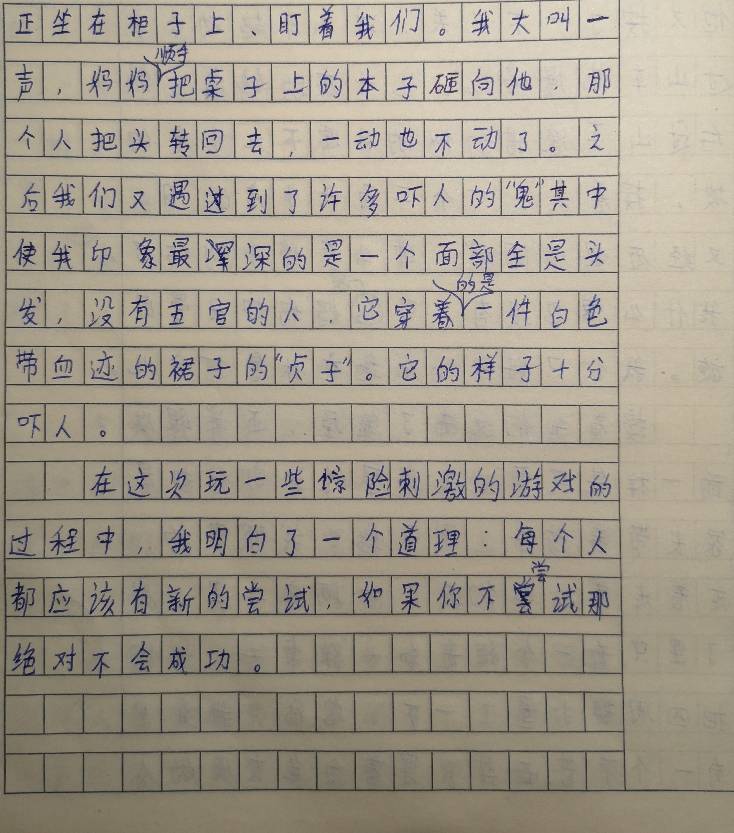 正坐在柜子上、盯着我们。我大叫一
声，妈妈顺手把桌子上的本子砸向他，那
个人把头转回去，一动也不动了。之
后我们又遇到了许多吓人的“鬼”其中
使我印象最深的是一个面部全是头
发，没有五官的人，它穿着的是一件白色
带血迹的裙子的“贞子”。它的样子十分
吓人。
在这次玩一些惊险刺激的游戏的
过程中，我明白了一个道理：每个人
都应该有新的尝试，如果你不尝试那
绝对不会成功。